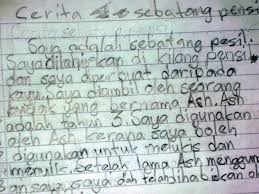 Cerita sebatang pensi
Saya adalah sebatang pesil.
Saya dilahirkan di kilang pensil
dan saya diperbuat daripada
kayu. Saya diambil oleh seorang
yang bernama Ash. Ash
adalah tahun 3. Saya digunakan
oleh Ash kerana saya boleh
digunakan untuk melukis dan
menulis. Setelah lama Ash menggun
saya, saya dan